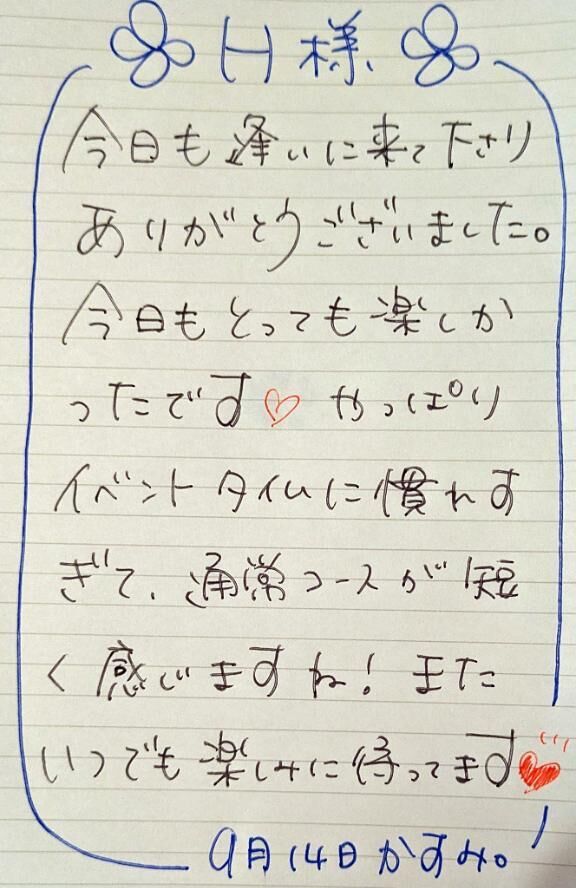 H様
今日も逢いに来て下さり
ありがとうございました。
今日もとっても楽しか
ったです♡ やっぱり
イベントタイムに慣れす
ぎて、通常コースが短
く感じますね！また
いつでも楽しみに待ってます♥
9月14日かすみ。